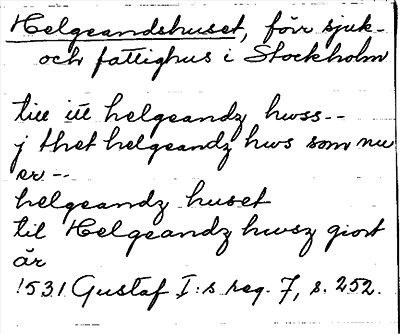 Helgeandshuset, förr sjuk-
och fattighus i Stockholm
till itt helgeandz hwss--
j thet helgeandz hws som nu
er--
helgeandz huset
til Helgeandz hwsz giort
är
1531 Gustaf I:s reg. 7, s. 252.